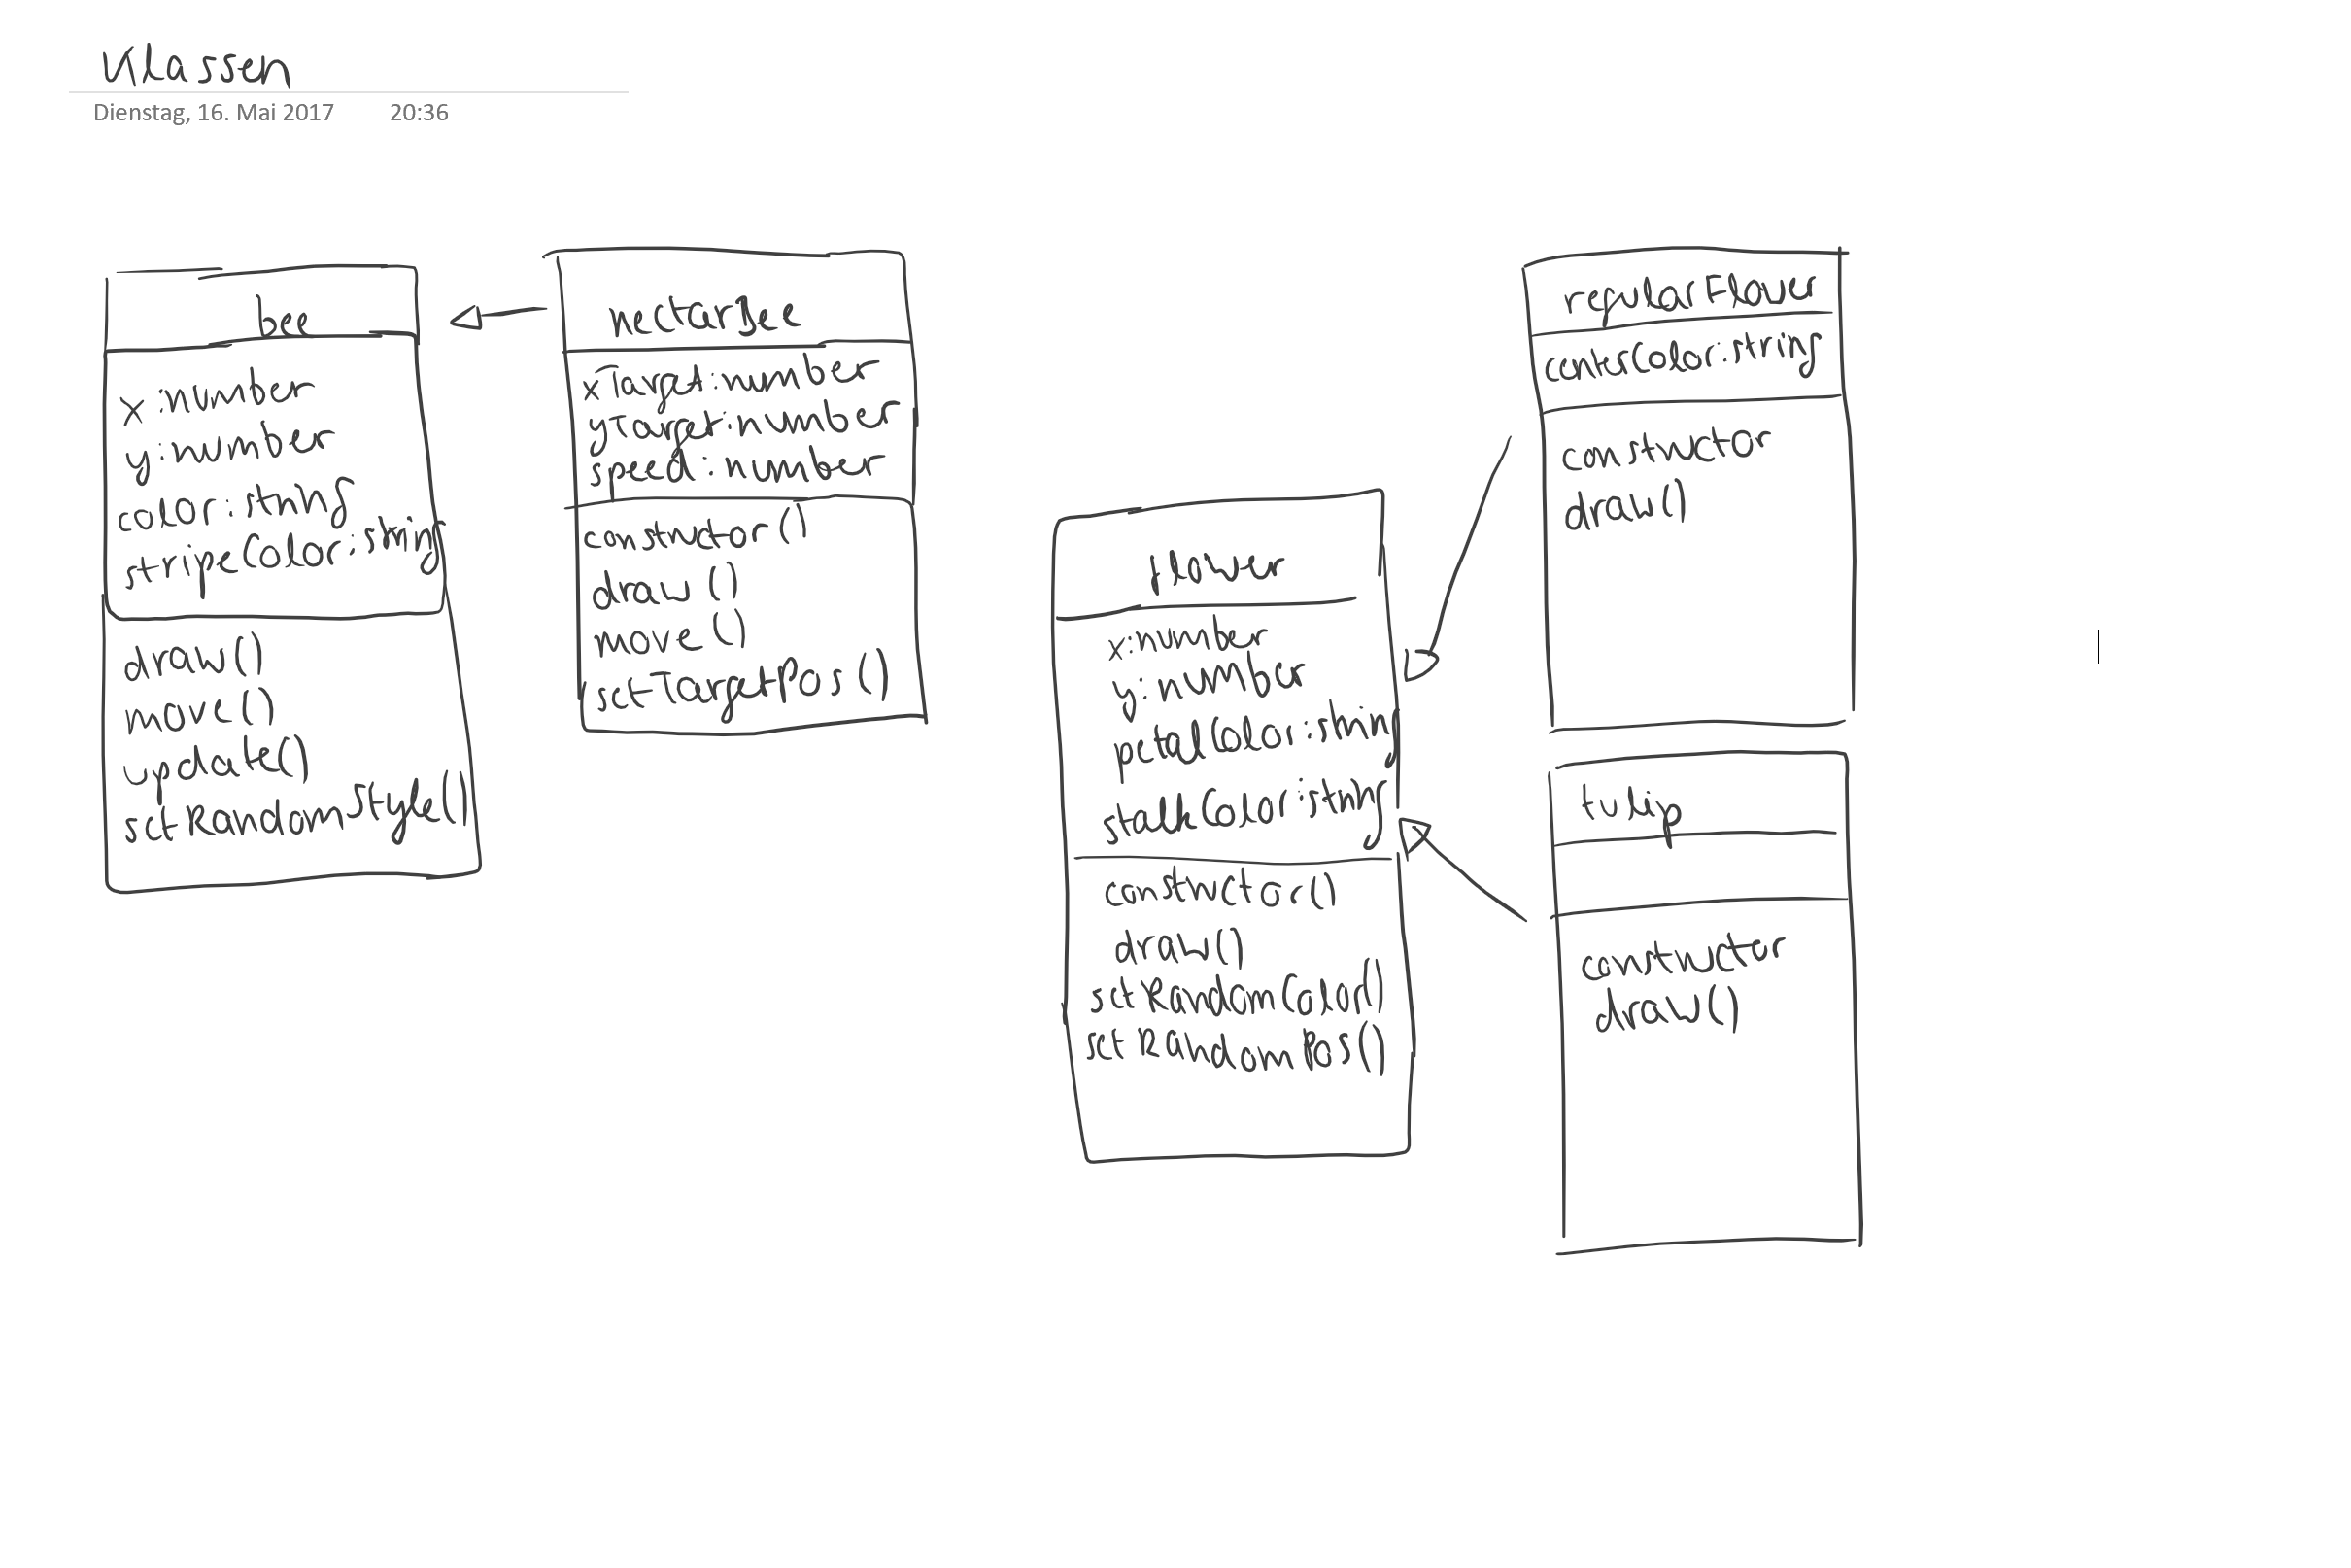 Klassen
Dienstag, 16. Mai 2017 20:36
bee
x:number
y:number
color:string
stripeColor:string
draw()
move()
update()
setRandomStyle()
nectarBee
xTarget:number
yTarget:number
speed:number
constructor()
draw()
move()
setTargetPos()
flower
x:number
y:number
petalColor:string
stalkColor:string
constructor()
draw()
setRandomColor()
setRandomPos()
regularFlower
centerColor:string
constructor
draw()
tulip
constructor
draw()